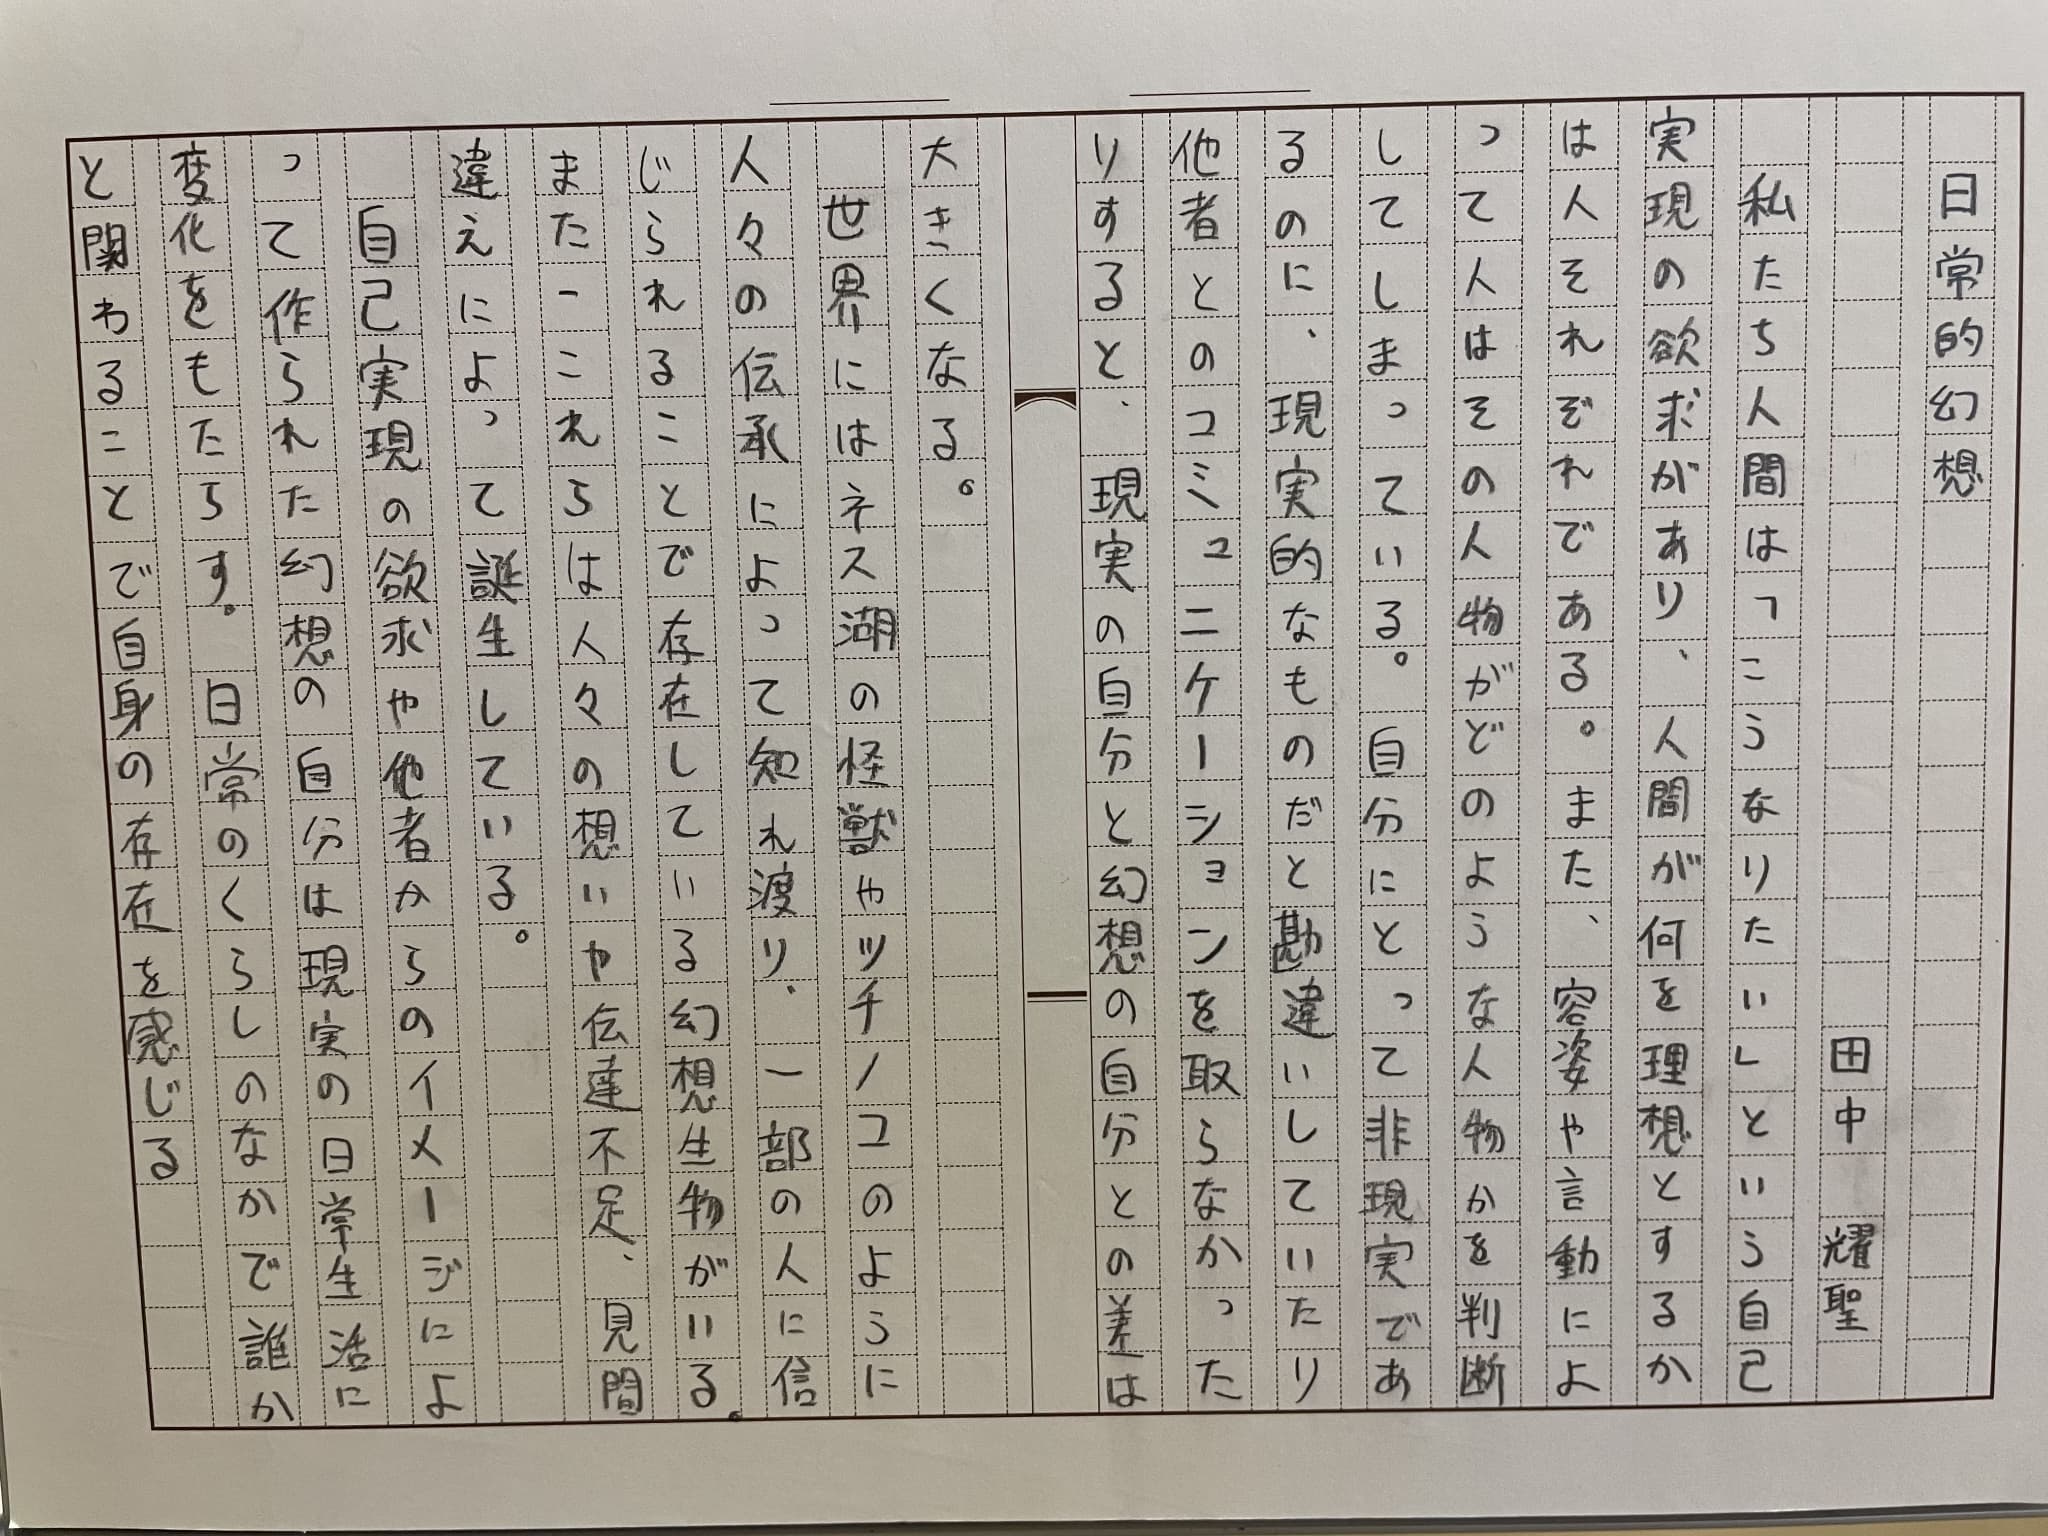 日常的幻想
田中 耀聖
私たち人間は「こうなりたい」という自己
実現の欲求があり、人間が何を理想とするか
は人それぞれである。また、容姿や言動によ
って人はその人物がどのような人物かを判断
してしまっている。自分にとって非現実であ
るのに、現実的なものだと勘違いしていたり
他者とのコミュニケーションを取らなかった
りすると、現実の自分と幻想の自分との差は
大きくなる。
世界にはネス湖の怪獣やツチノコのように
人々の伝承によって知れ渡り、一部の人に信
じられることで存在している幻想生物がいる。
またこれらは人々の想いや伝達不足、見間
違えによって誕生している。
自己実現の欲求や他者からのイメージによ
って作られた幻想の自分は現実の日常生活に
変化をもたらす。日常のくらしのなかで誰か
と関わることで自身の存在を感じる